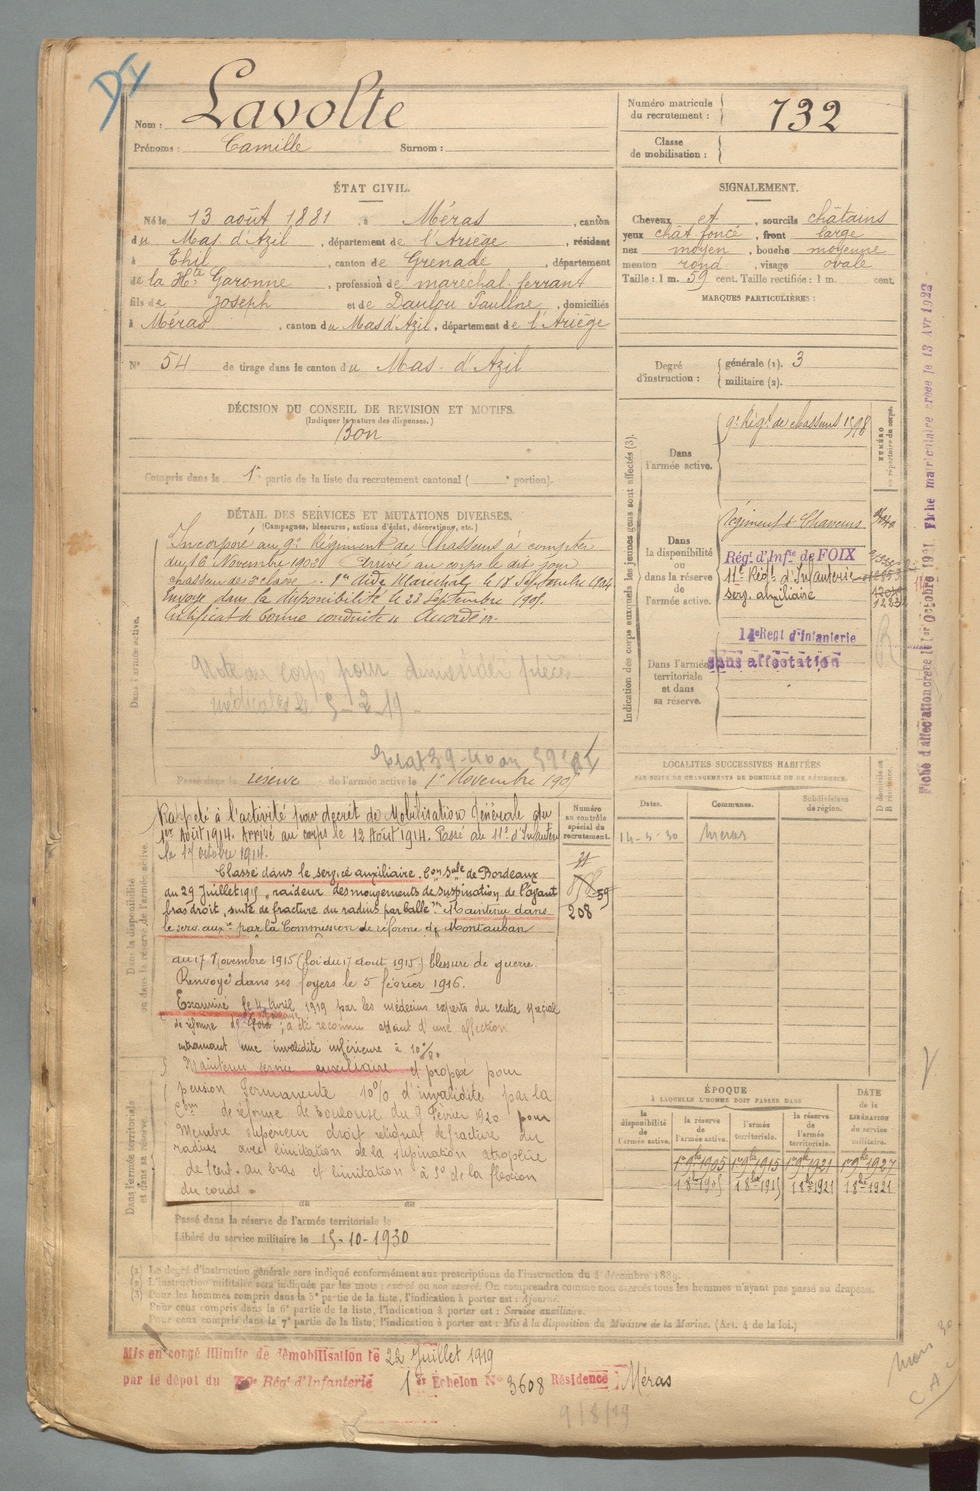 DI
Nom : Lavolte
Prénoms : Camille Surnom :
Numéro matricule du recrutement : 732
Classe de mobilisation :
ÉTAT CIVIL.
Né le 13 août 1881, à Méras, canton
du Mas d'Azil, département de l'Ariège, résidant
à Thil, canton de Grenade, département
de la Hte Garonne, profession de marechal ferrant
fils de Joseph et de Daulou Pauline, domiciliés
à Méras, canton du Mas d'Azil, département de l'Ariège
N° 54 de tirage dans le canton du Mas d'Azil
SIGNALEMENT.
Cheveux et sourcils châtains
yeux chât. foncé, front large
nez moyen, bouche moyenne
menton rond, visage ovale
Taille : 1 m. 59 cent. Taille rectifiée : 1 m. cent.
MARQUES PARTICULIÈRES :
Degré d'instruction : générale (1). 3
militaire (2).
DÉCISION DU CONSEIL DE REVISION ET MOTIFS.
(Indiquer la nature des dispenses.)
Bon
Compris dans la 1e partie de la liste du recrutement cantonal ( e portion).
DÉTAIL DES SERVICES ET MUTATIONS DIVERSES.
(Campagnes, blessures, actions d'éclat, décorations, etc.)
Dans l'armée active.
Incorporé au 9e Régiment de Chasseurs à compter
du 16 Novembre Arrivé au corps le dit jour
chasseur de 2e classe. 1er Aide Marechal le 18 Septembre 1904
Envoyé dans la disponibilité le 23 Septembre
Certificat de bonne conduite "Accordé".
Note au corps pour demander pièces
médicales le 5-2-19
Passé dans la réserve de l'armée active le 1er Novembre
Indication des corps auxquels les jeunes gens sont affectés (3).
NUMÉRO au répertoire du corps.
Dans l'armée active.
9e Régt de chasseurs 1598
Dans la disponibilité ou dans la réserve de l'armée active.
Régiment de Chasseurs
Régt d'Infie de FOIX
11e Régt d'Infanterie
serv. auxiliaire
Dans l'armée territoriale et dans sa réserve.
14e Regt d'Infanterie
sans affectation
Fiche d'affectation créée le 1er Octobre 1921 Fiche matriculaire créée le 13 Avr 1922
Dans la disponibilité ou dans la réserve de l'armée active.
Rappelé à l'activité par décret de Mobilisation Générale du
1er Août 1914. Arrivé au corps le 12 Août 1914. Passé au 11e d'Infanterie
le 17 octobre 1914.
Classé dans le service auxiliaire, Con Sple de Bordeaux
du 29 Juillet 1915 "raideur des mouvements de supination de l'avant
bras droit, suite de fracture du radius par balle". Maintenu dans
le serv. auxre par la Commission de réforme de Montauban
du 17 Novembre 1915 (loi du 17 aout 1915) blessure de guerre.
Renvoyé dans ses foyers le 5 février 1916.
Examiné le 4 Avril 1919 par les médecins experts du centre spécial
de réforme ; a été reconnu atteint d'une affection
entrainant une invalidité inférieure à 10%.
Maintenu service auxiliaire et proposé pour
pension permanente 10% d'invalidité par la
Con de réforme de Toulouse du 9 Février 1920 pour
Membre supérieur droit reliquat de fracture du
radius avec limitation de la supination atrophie
de 1 cent. au bras et limitation à 5° de la flexion
du coude.
Numéro au contrôle spécial du recrutement.
59
208
Dans l'armée territoriale et dans sa réserve.
Passé dans la réserve de l'armée territoriale le
Libéré du service militaire le 15-10-1930
LOCALITÉS SUCCESSIVES HABITÉES
PAR SUITE DE CHANGEMENTS DE DOMICILE OU DE RÉSIDENCE.
Dates. Communes. Subdivisions de région. D domicile ou R résidence.
14-3-30 Méras
ÉPOQUE
À LAQUELLE L'HOMME DOIT PASSER DANS
la disponibilité de l'armée active. la réserve de l'armée active. l'armée territoriale. la réserve de l'armée territoriale. DATE de la LIBÉRATION du service militaire.
1er 9bre 1905 1er 9bre 1915 1er 9bre 1921 1er 9bre 1927
(1) Le degré d'instruction générale sera indiqué conformément aux prescriptions de l'instruction du 4 décembre 1889.
(2) L'instruction militaire sera indiquée par les mots : exercé ou non exercé. On comprendra comme non exercés tous les hommes n'ayant pas passé au drapeau.
(3) Pour les hommes compris dans la 5e partie de la liste, l'indication à porter est : Ajourné.
Pour ceux compris dans la 6e partie de la liste, l'indication à porter est : Service auxiliaire.
Pour ceux compris dans la 7e partie de la liste, l'indication à porter est : Mis à la disposition du Ministre de la Marine. (Art. 4 de la loi.)
Mis en congé illimité de démobilisation le 22 Juillet 1919
par le dépôt du Régt d'Infanterie 1er Échelon N° 3608 Résidence Méras
9/8/19
mars 30